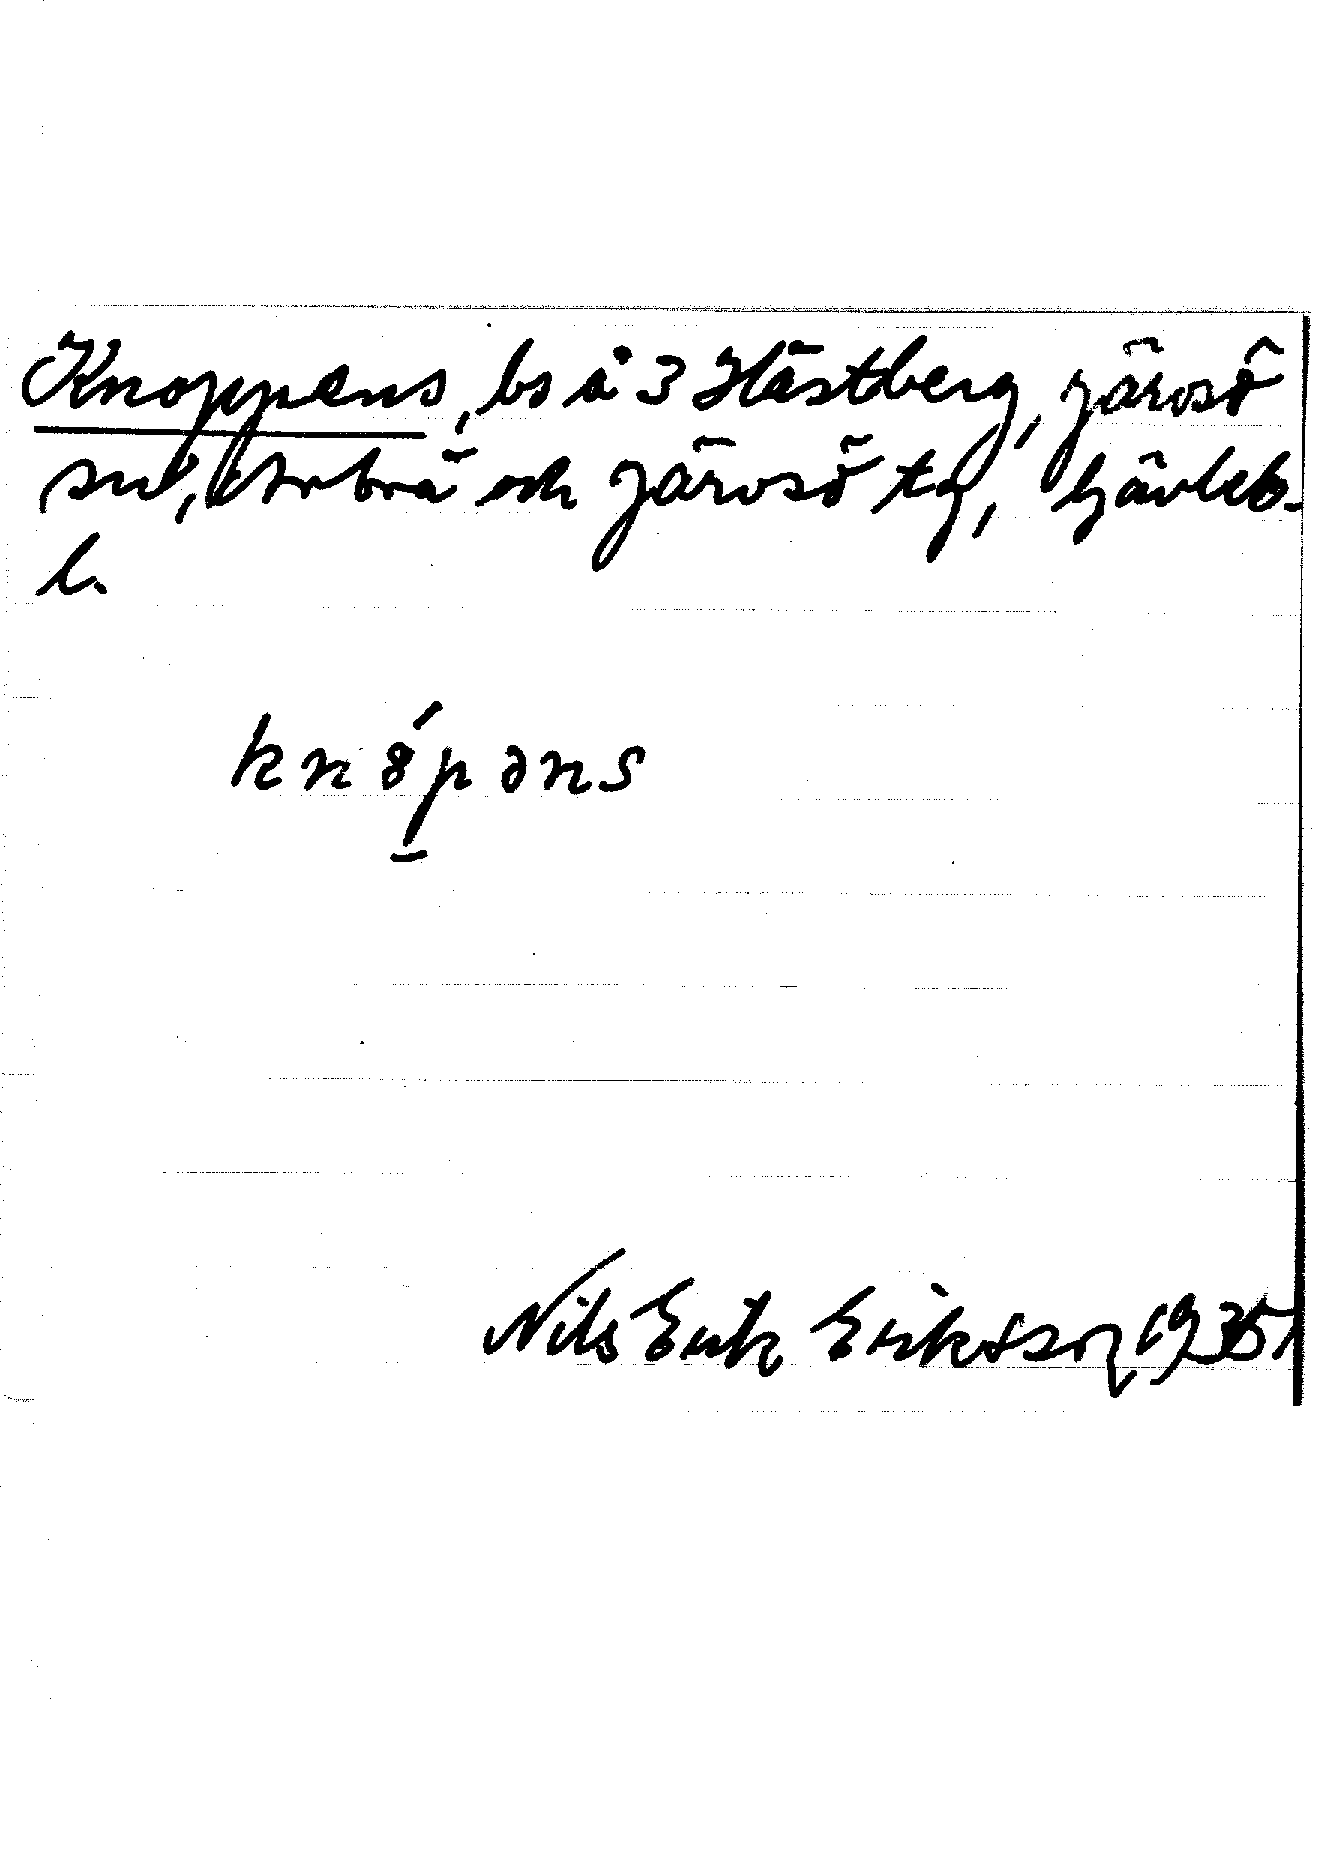 Knoppens, bs å 3 Hästberg, Järvsö
sn, Arbrå och Järvsö tg, Gävleb.
l.
knópəns
Nils Erik Eriksson, 1935